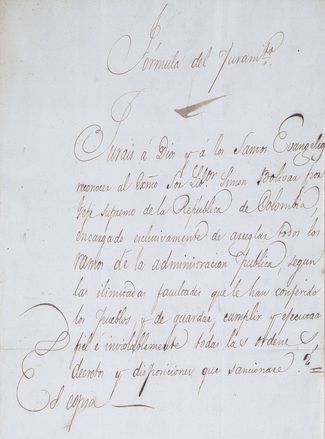 Fórmula del Juramto.
Jurais á Dios y á los Santos Evangelios
reconocer al Exmo Sor Libor Simon Bolivar por
Gefe supremo de la Republica de Colombia,
encargado esclusivamente de arreglar todos los
ramos de la administracion publica, segun
las ilimitadas facultades que le han conferido
los Pueblos y de guardar, cumplir y ejecutar
fiel é inviolablemente todas las ordenes,
decretos y disposiciones que sancionare?=
Es copia